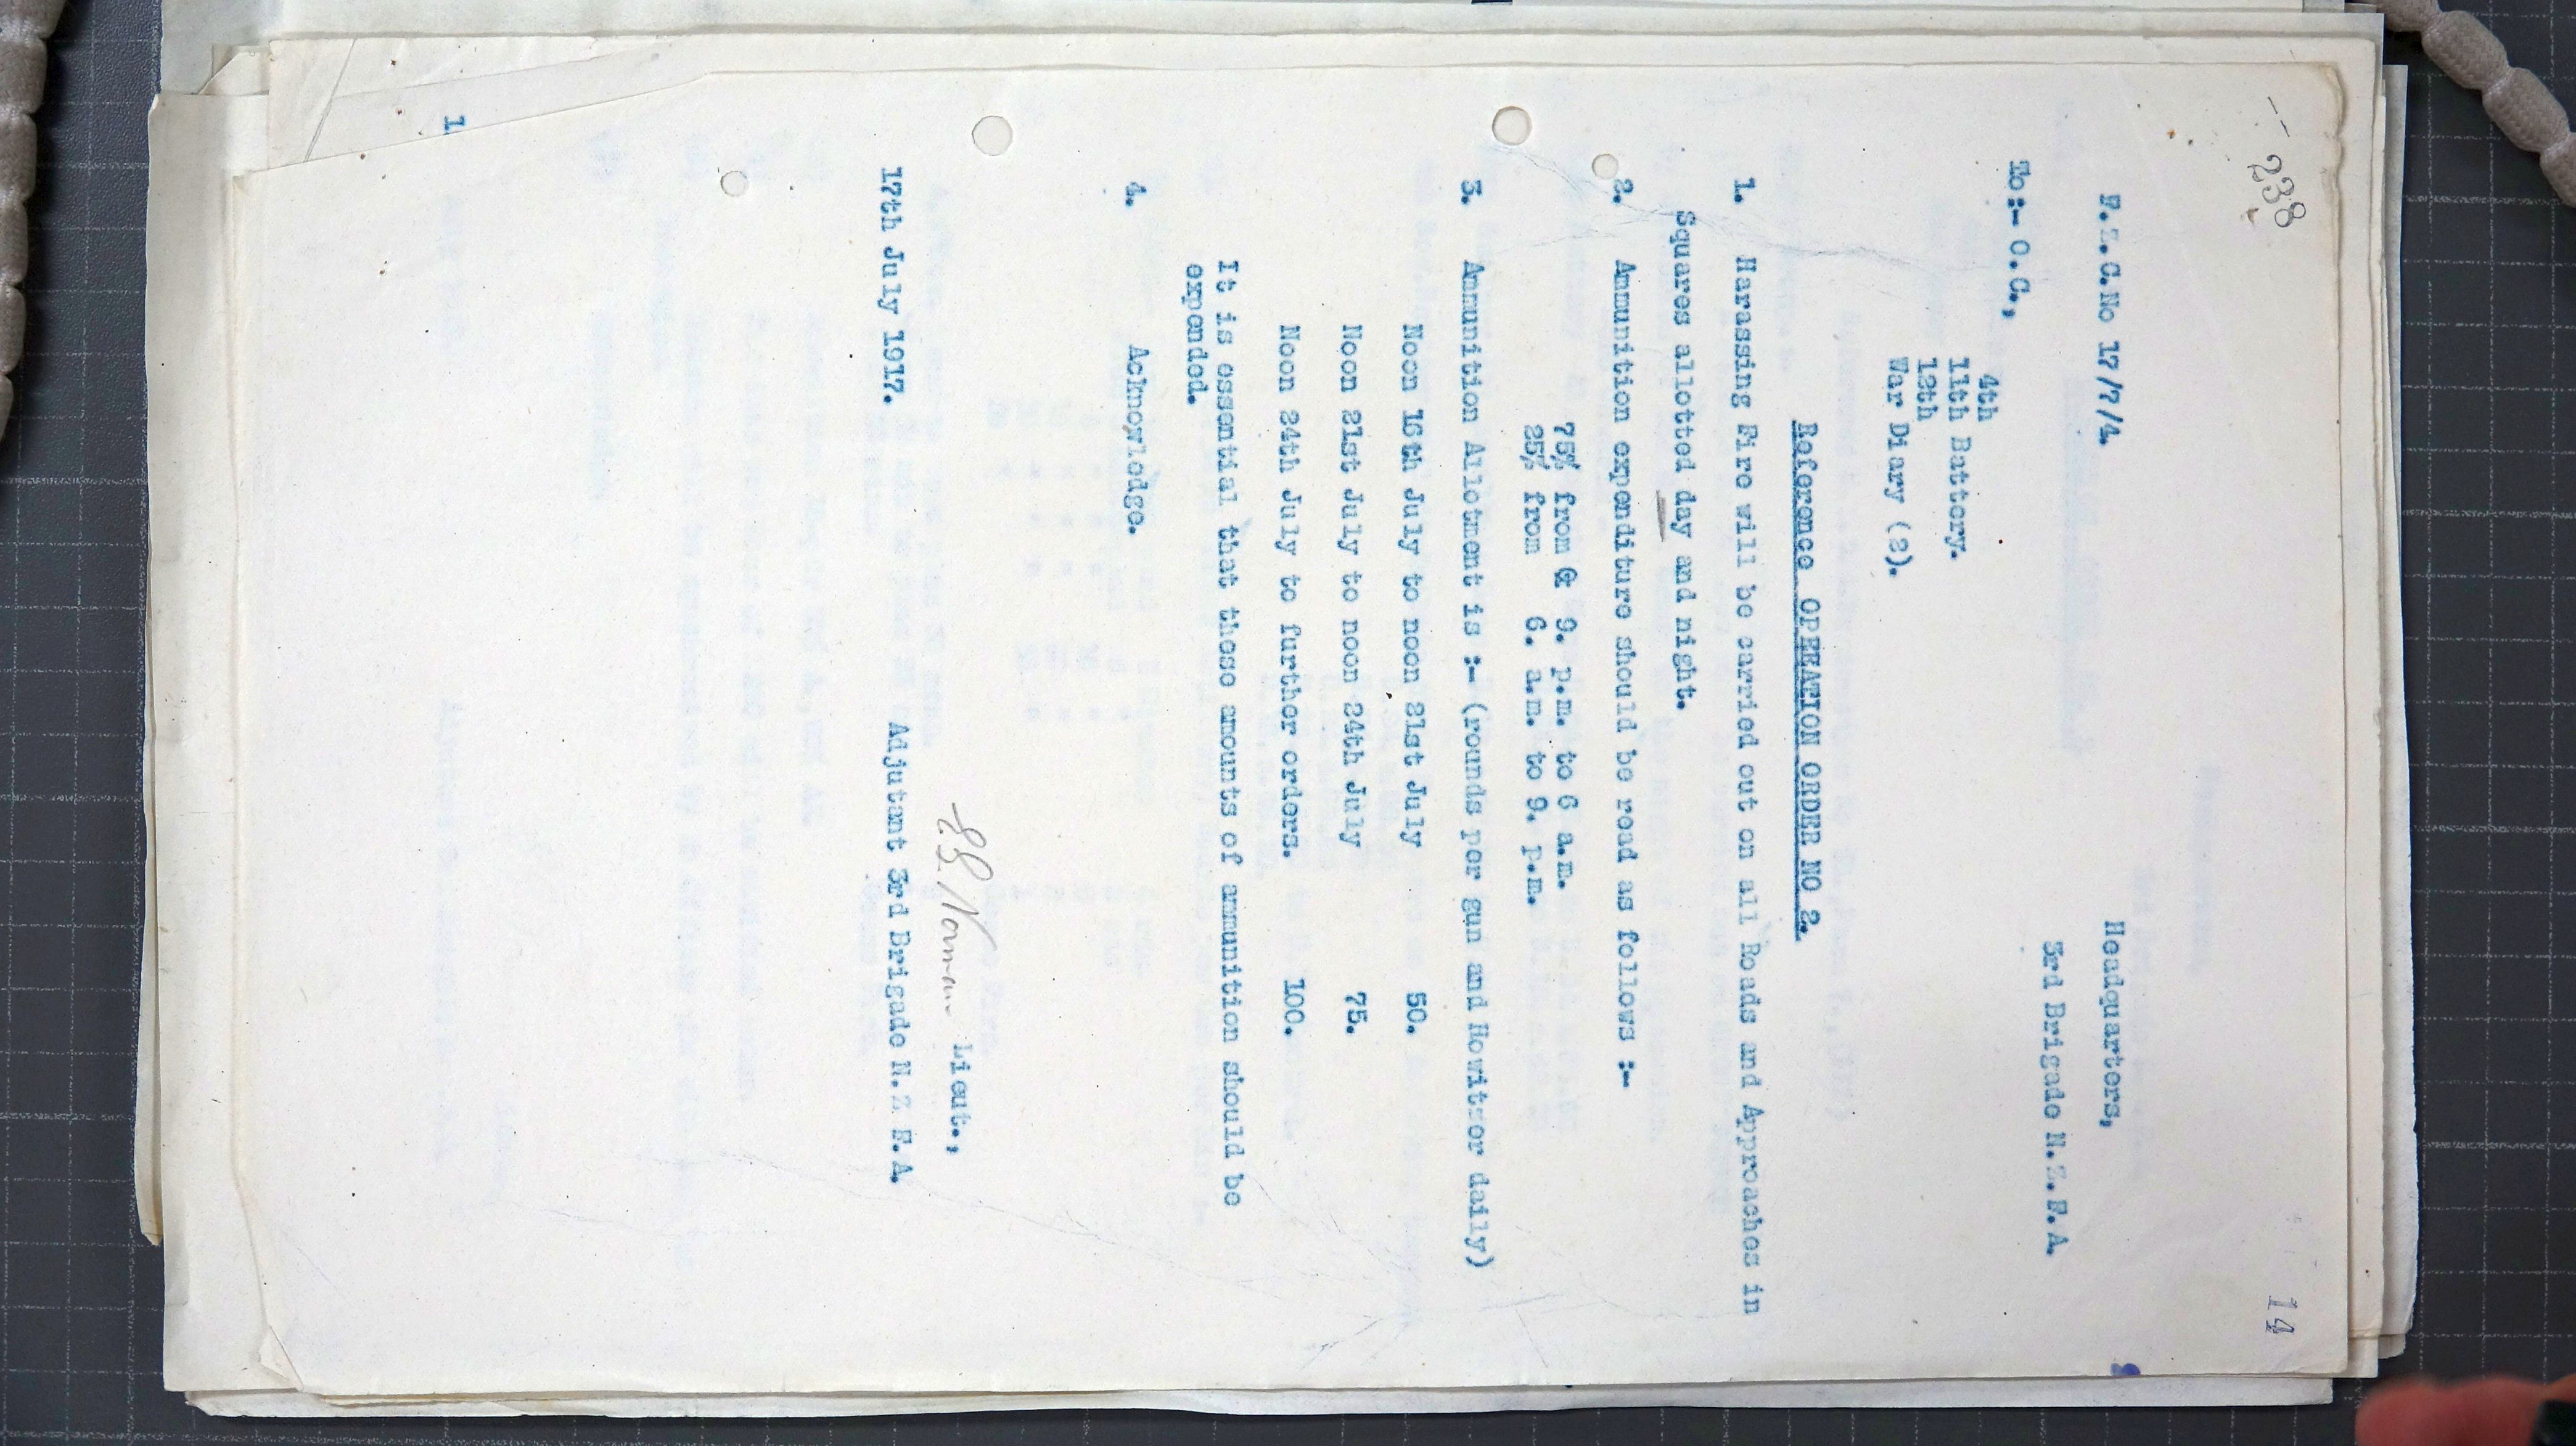 238
14
F.Z.C.No 17/7/4.
Headquarters,
3rd Brigade N.Z.F.A.
To:- O.C.,
4th
11th Battery.
12th
War Diary (2).
Reference OPEATION ORDER NO 2.
1. Harassing Fire will be carried out on all Roads and Approaches in
Squares allotted day and night.
2. Ammunition expenditure should be read as follows :-
75% from @ 9. p.m. to 6 a.m.
25% from 6. a.m. to 9. p.m.
3. Ammunition Allotment is :- (rounds per gun and Howitzer daily)
Noon 16th July to noon 21st July 50.
Noon 21st July to noon 24th July 75.
Noon 24th July to further orders. 100.
It is essential that these amounts of ammunition should be
expended.
4. Acknowledge.
Norman Lieut.,
17th July 1917. Adjutant 3rd Brigade N.Z F.A.
1.